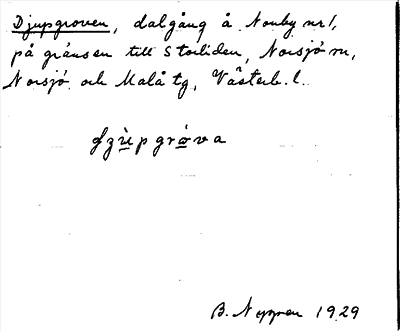 Djupgroven, dalgång å Norrby nr 1,
på gränsen till Storliden, Norsjö sn,
Norsjö och Malå tg, Västerb. l.
B. Nyppen 1929